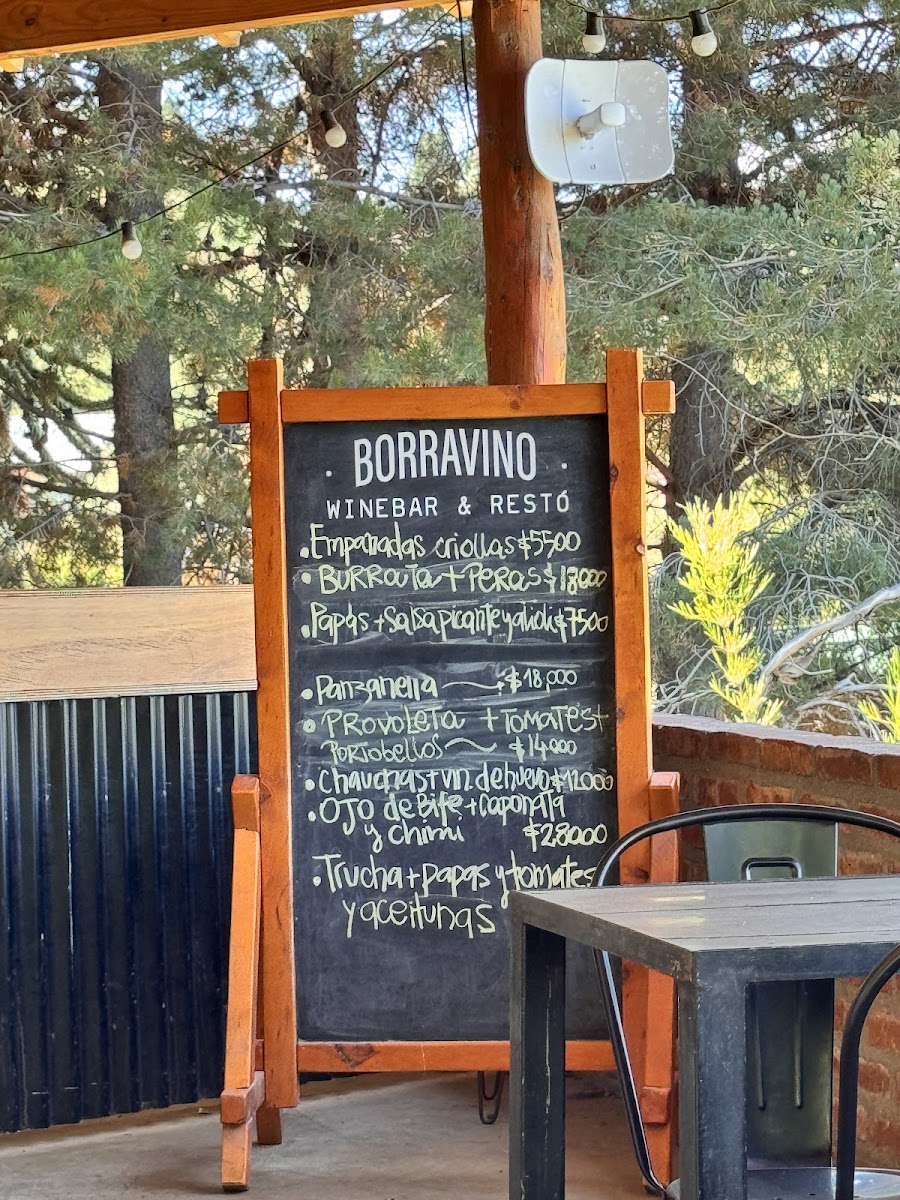 · BORRAVINO ·
WINEBAR & RESTÓ
• Empanadas criollas $5500
• BURRATA + PERAS $18000
• Papas + salsa picante y alioli $7500
• Panzanella $18,000
• PROVOLETA + TOMATES +
PORTOBELLOS $14000
• chauchas + vin. de huevo $12000
• OJO de Bife + caponata
y chimi $28000
• Trucha + papas y tomates
y aceitunas